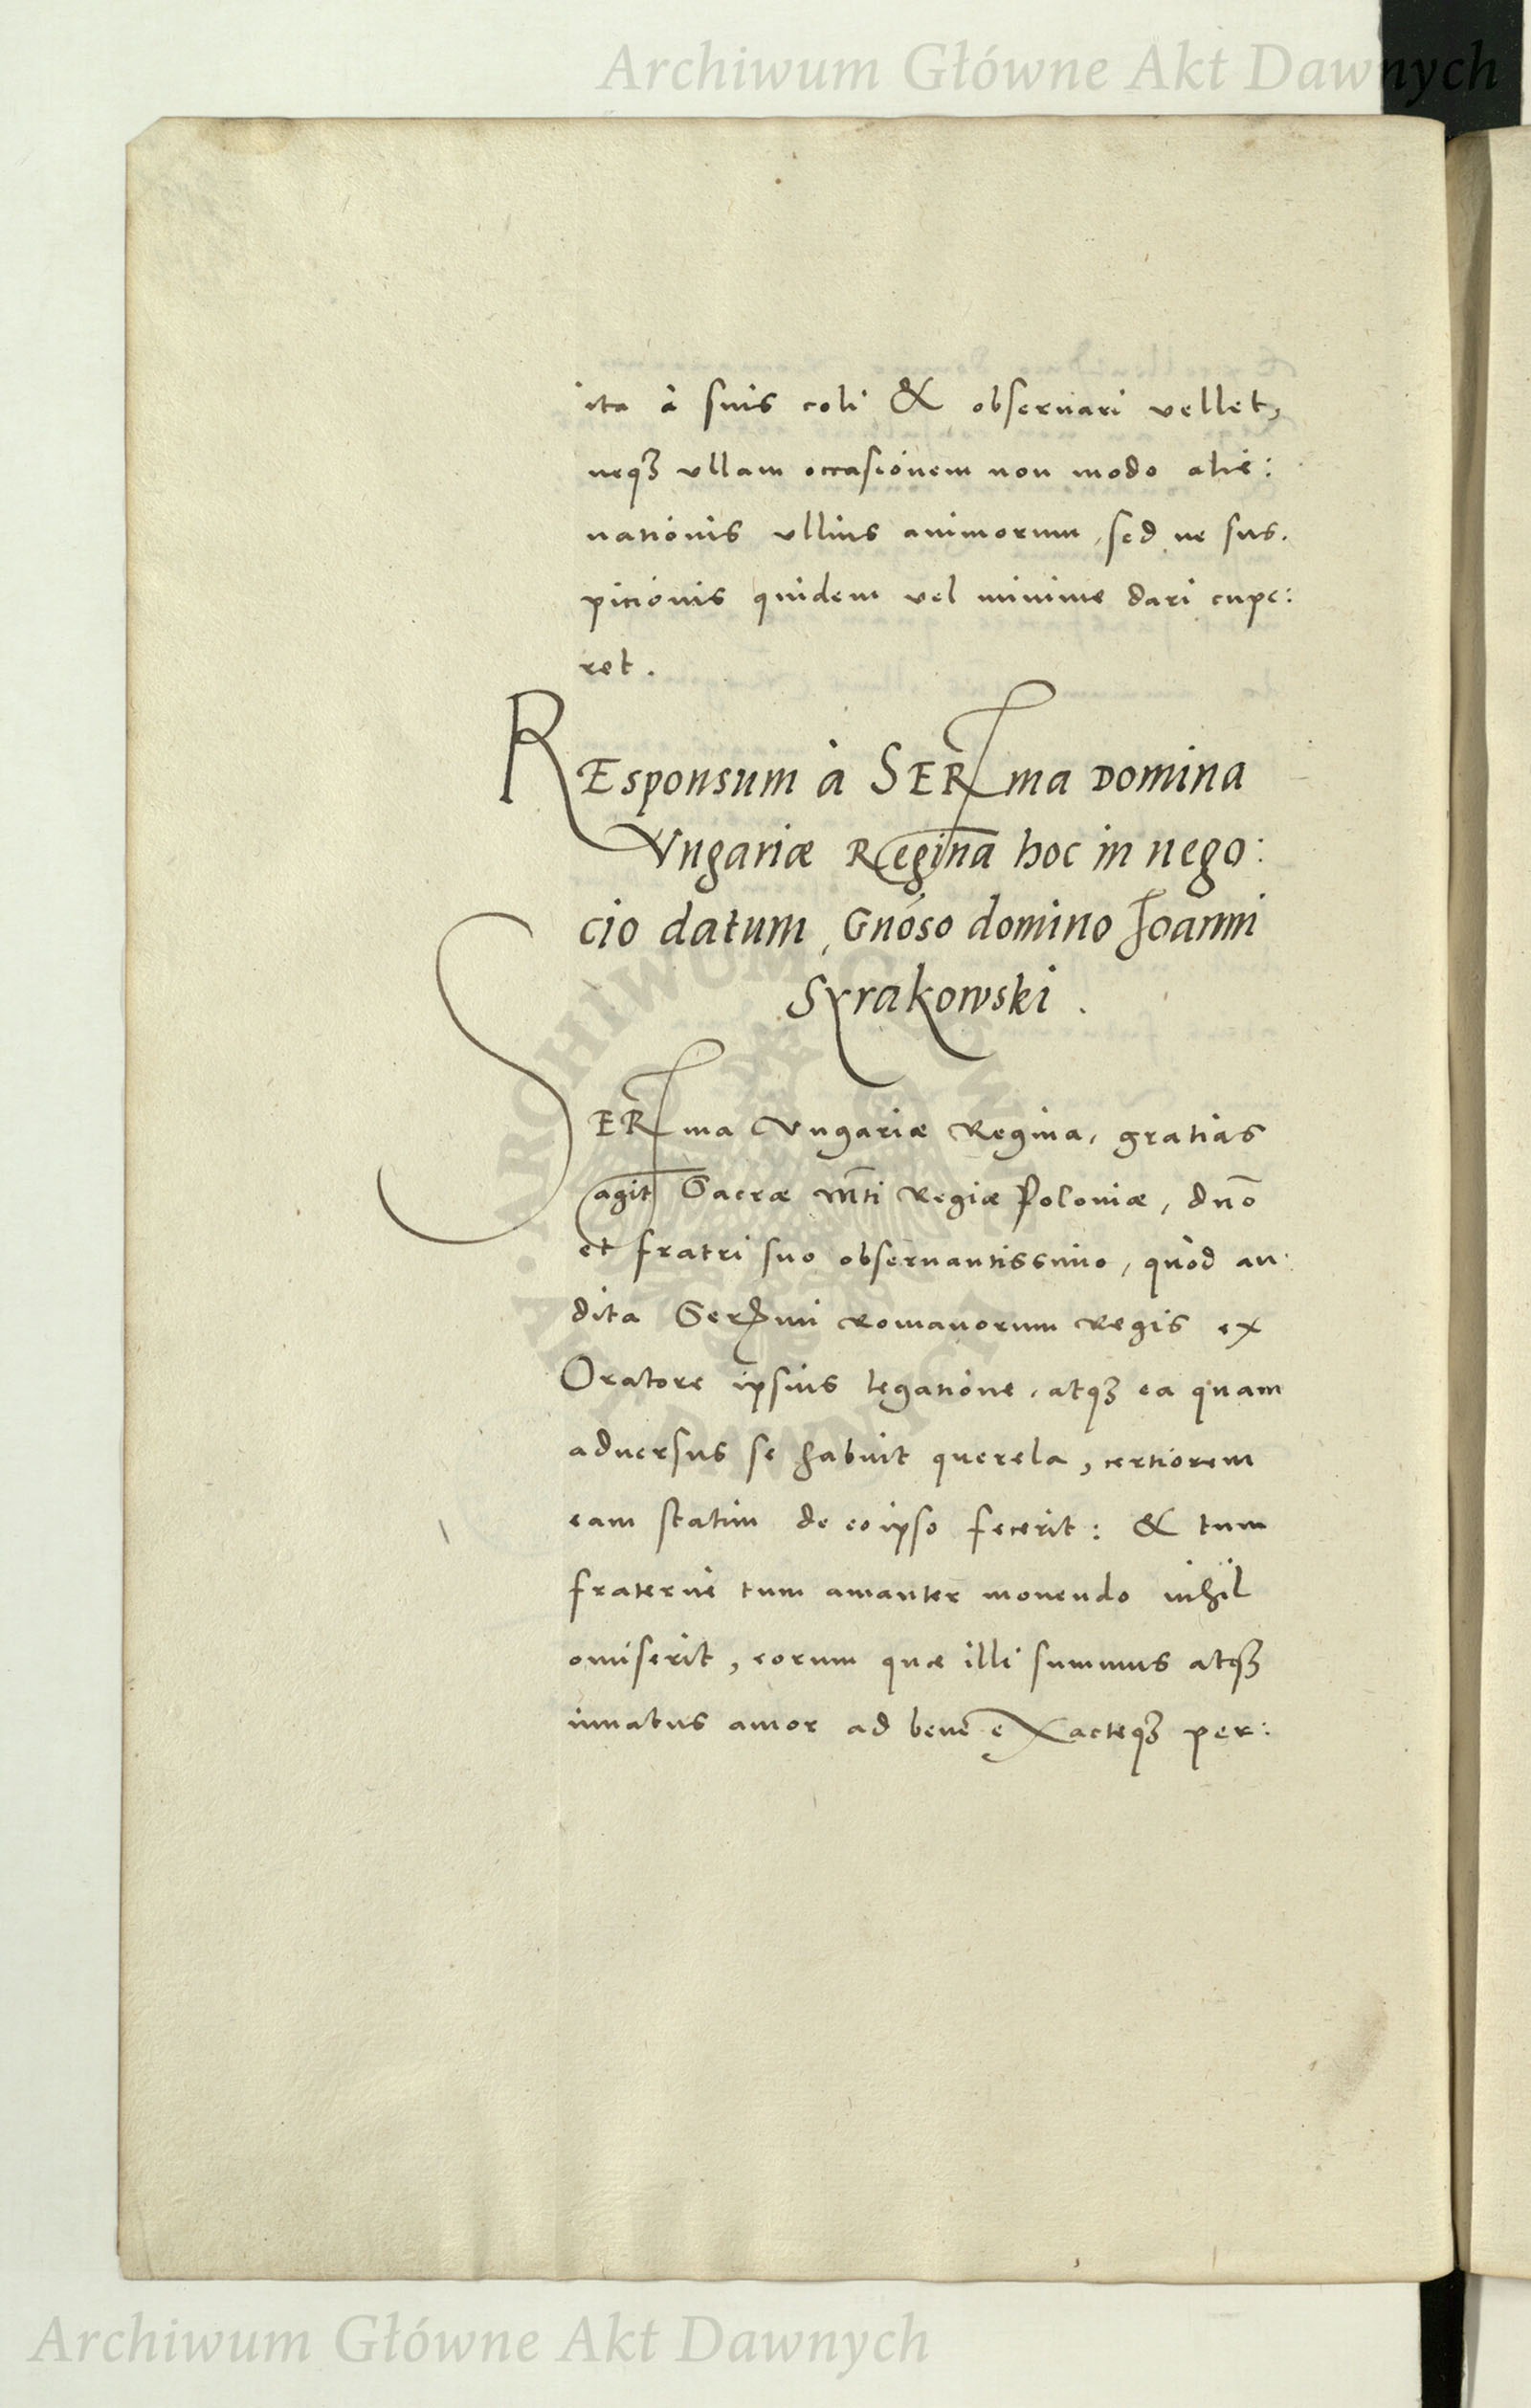 Archiwum Główne Akt Dawnych
ita à suis coli & obseruari vellet,
neqꝫ vllam occasionem non modo alie:
nationis vllius animorum, sed ne sus.
picionis quidem vel minime dari cupe:
ret.
REsponsum à SERma Domina
Vngariæ Regina hoc in nego:
cio datum, Gnóso domino Joanni
Syrakowski.
SERma Vngariæ Regina, gratias
agit Sacræ Mti Regiæ Poloniæ, dno
et fratri suo obseruantissimo, quòd au:
dita Sermi Romanorum Regis ex
Oratore ipsius legatione, atqꝫ ea quam
aduersus se habuit querela, certiorem
eam statim de eo ipso fecerit: & tum
fraterne tum amanter monendo nihil
omiserit, eorum quæ illi summus atqꝫ
innatus amor ad bene exacteqꝫ per:
ARCHIWUM GŁÓWNE AKT DAWNYCH
Archiwum Główne Akt Dawnych